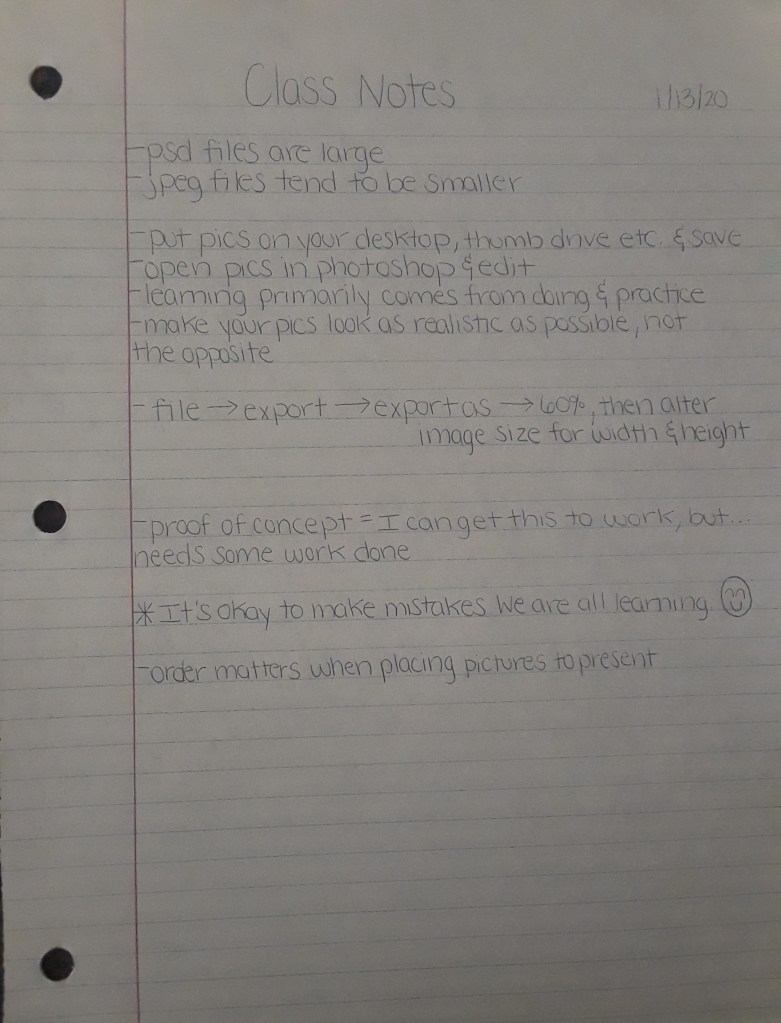 Class Notes 1/13/20
-psd files are large
-jpeg files tend to be smaller
-put pics on your desktop, thumb drive etc. & save
-open pics in photoshop & edit
-learning primarily comes from doing & practice
-make your pics look as realistic as possible, not
the opposite
-file → export → export as → 60%, then alter
image size for width & height
-proof of concept = I can get this to work, but...
needs some work done
* It's okay to make mistakes we are all learning ☺
-order matters when placing pictures to present